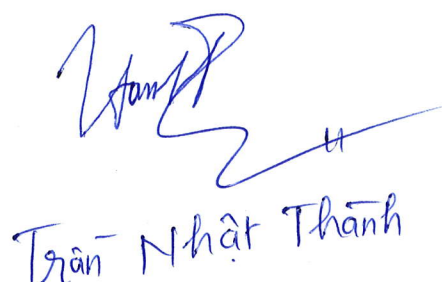 Trần Nhật Thành